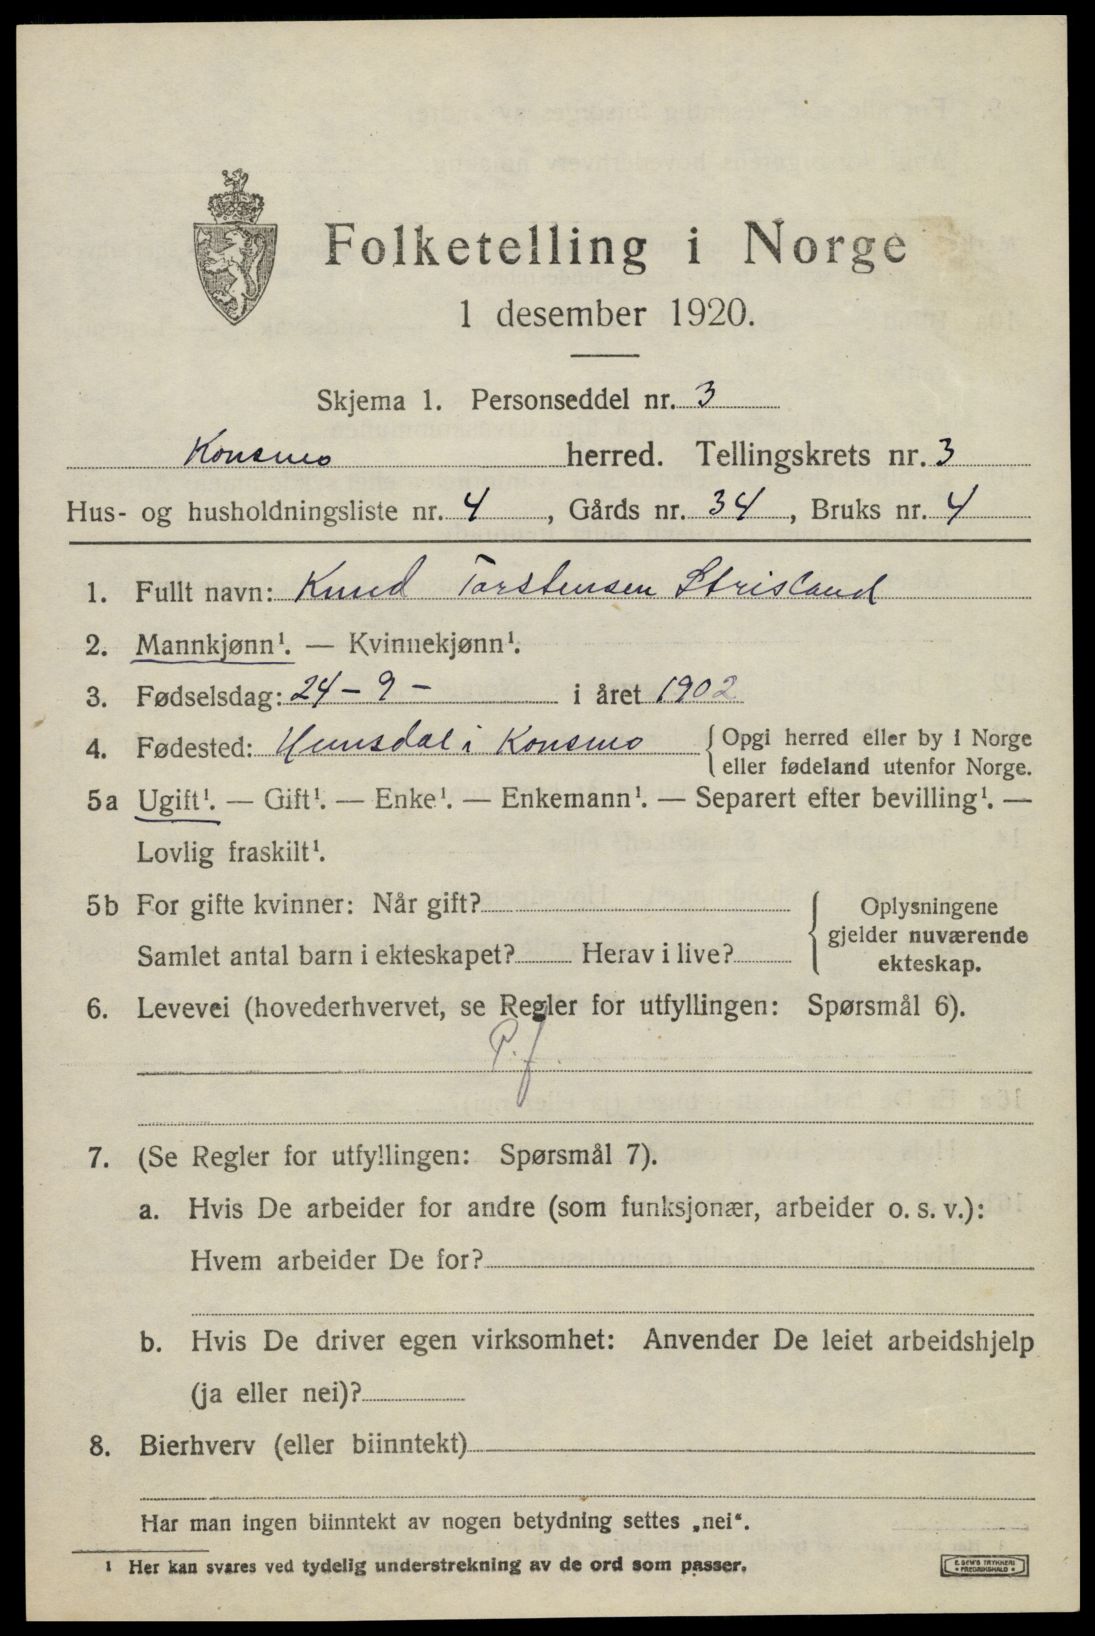 Folketelling i Norge
1 desember 1920.
Skjema 1. Personseddel nr. 3
Konsmo herred. Tellingskrets nr. 3
Hus- og husholdningsliste nr. 4, Gårds nr. 34, Bruks nr. 4
1. Fullt navn: Knud Torstensen Strisland
2. Mannkjønn¹. — Kvinnekjønn¹.
3. Fødselsdag: 24 - 9 - i året 1902
4. Fødested: Humsdal i Konsmo { Opgi herred eller by i Norge
eller fødeland utenfor Norge.
5a Ugift¹. — Gift¹. — Enke¹. — Enkemann¹. — Separert efter bevilling¹. —
Lovlig fraskilt¹.
5b For gifte kvinner: Når gift?
Samlet antal barn i ekteskapet? Herav i live?
{ Oplysningene
gjelder nuværende
ekteskap.
6. Levevei (hovederhvervet, se Regler for utfyllingen: Spørsmål 6).
P. f
7. (Se Regler for utfyllingen: Spørsmål 7).
a. Hvis De arbeider for andre (som funksjonær, arbeider o. s. v.):
Hvem arbeider De for?
b. Hvis De driver egen virksomhet: Anvender De leiet arbeidshjelp
(ja eller nei)?
8. Bierhverv (eller biinntekt)
Har man ingen biinntekt av nogen betydning settes „nei“.
¹ Her kan svares ved tydelig understrekning av de ord som passer.
E. SEM'S TRYKKERI
• FREDRIKSHALD •